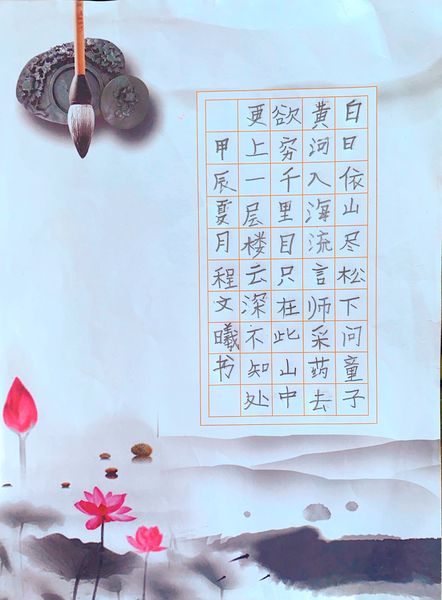 白日依山尽松下问童子
黄河入海流言师采药去
欲穷千里目只在此山中
更上一层楼云深不知处
甲辰夏月程文曦书